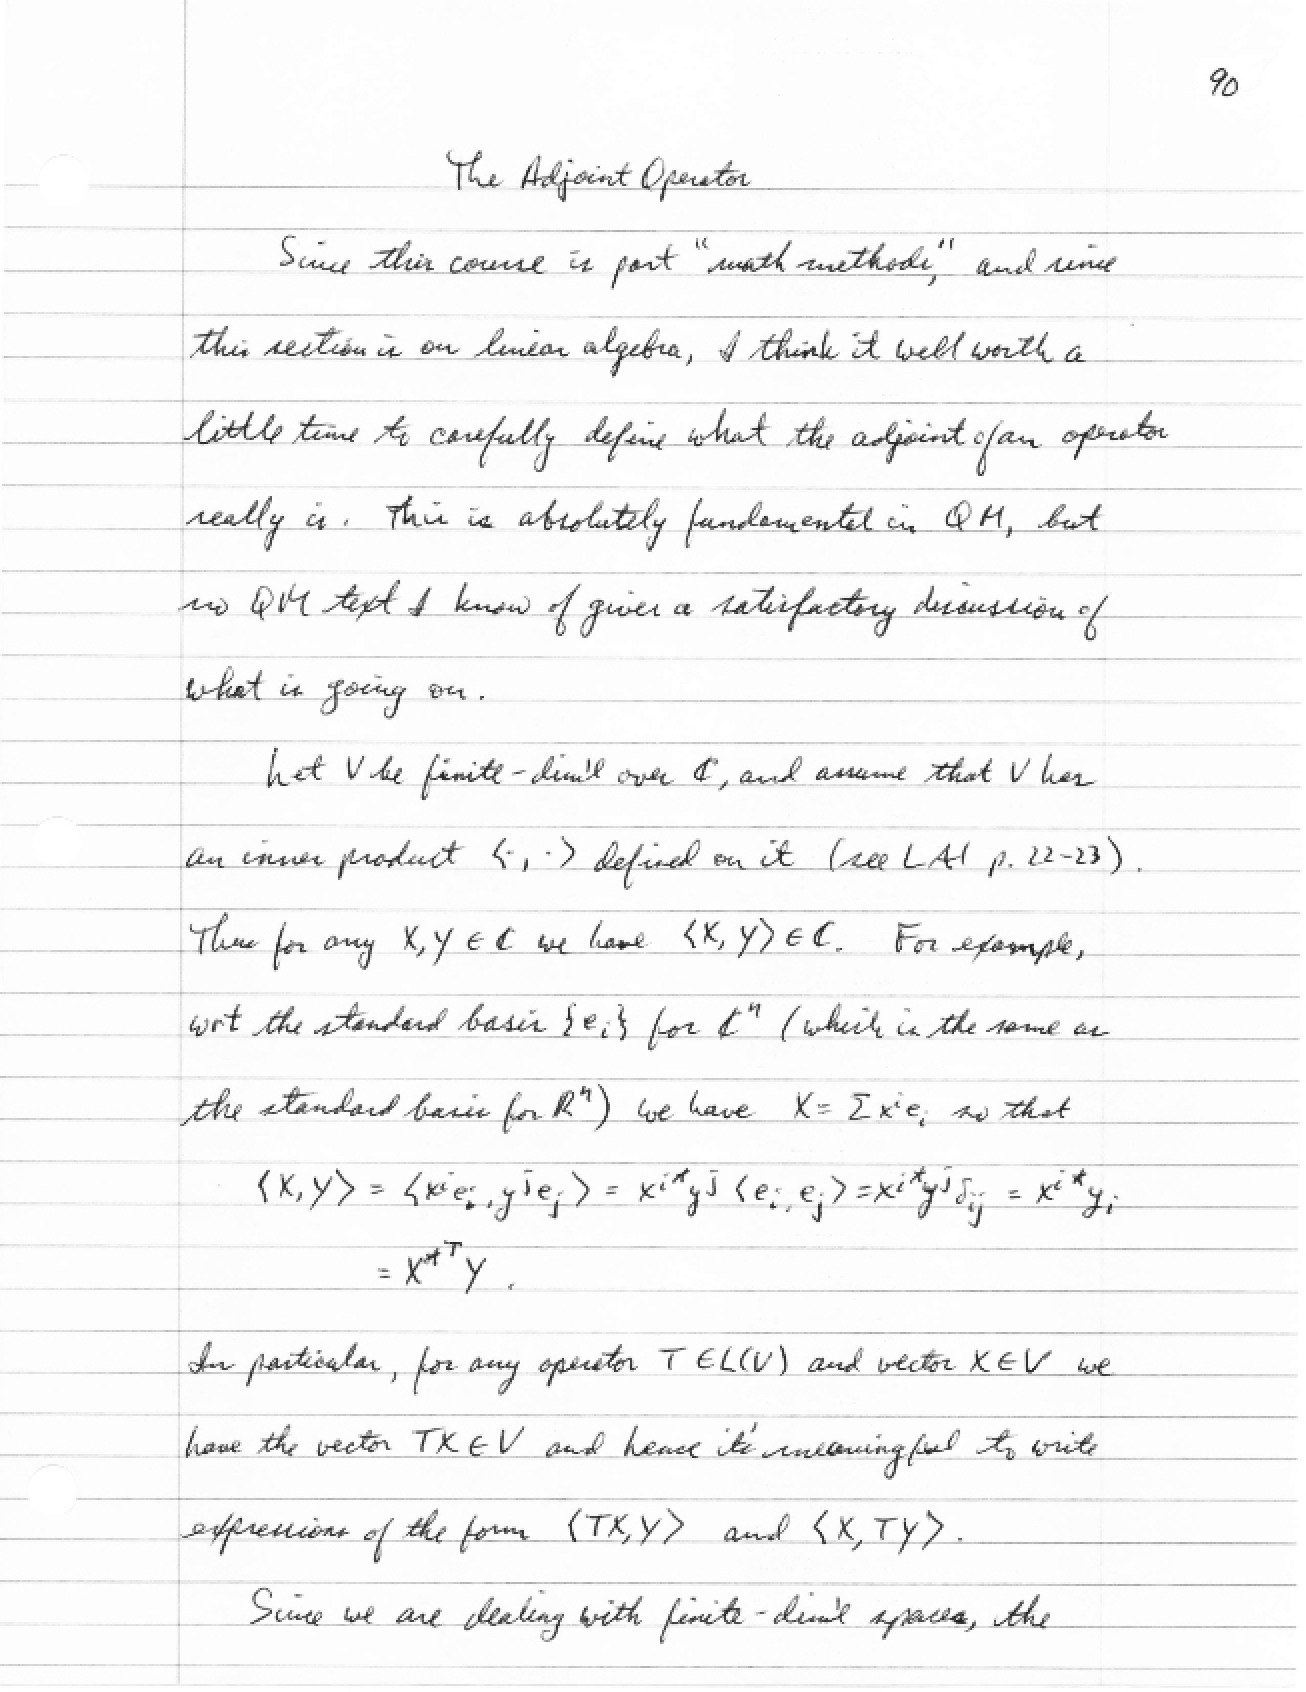 90
The Adjoint Operator
Since this course is part "math methods," and since
this section is on linear algebra, I think it well worth a
little time to carefully define what the adjoint of an operator
really is. This is absolutely fundamental in QM, but
no QM text I know of gives a satisfactory discussion of
what is going on.
Let V be finite-dim'l over ℂ, and assume that V has
an inner product ⟨·,·⟩ defined on it (see LA1 p. 22-23).
Thus for any X, Y ∈ ℂ we have ⟨X, Y⟩ ∈ ℂ. For example,
wrt the standard basis {eᵢ} for ℂⁿ (which is the same as
the standard basis for ℝⁿ) we have X = Σxⁱeᵢ so that
⟨X,Y⟩ = ⟨xⁱeᵢ, yʲeⱼ⟩ = xⁱ*yʲ⟨eᵢ, eⱼ⟩ = xⁱ*yʲδᵢⱼ = xⁱ*yᵢ
= X*ᵀY.
In particular, for any operator T ∈ L(V) and vector X ∈ V we
have the vector TX ∈ V and hence it's meaningful to write
expressions of the form ⟨TX,Y⟩ and ⟨X,TY⟩.
Since we are dealing with finite-dim'l spaces, the